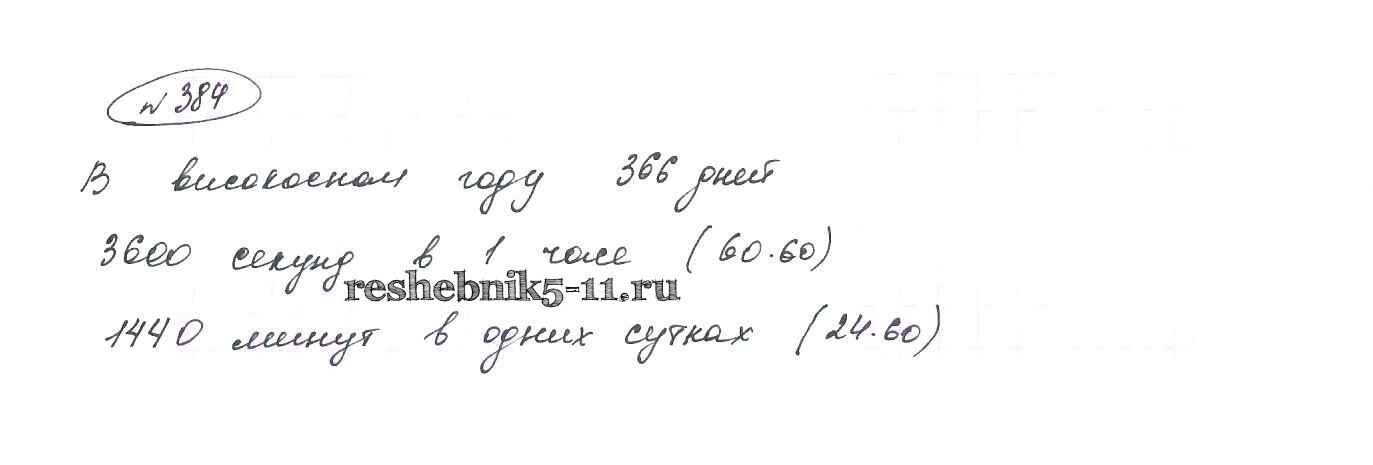 № 384
В високосном году 366 дней
3600 секунд в 1 часе (60·60)
reshebnik5-11.ru
1440 минут в одних сутках (24·60)